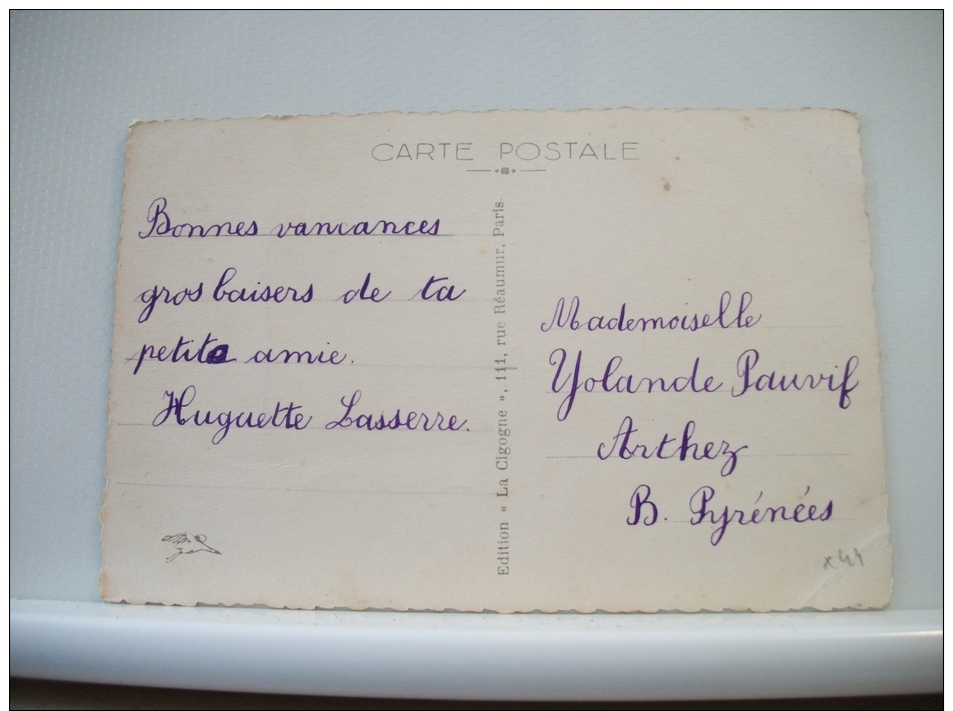 CARTE POSTALE
Bonnes vancances
gros baisers de ta
petite amie.
Huguette Lasserre.
Edition « La Cigogne », 111, rue Réaumur, Paris
Mademoiselle
Yolande Pauvif
Arthez
B. Pyrénées
x41